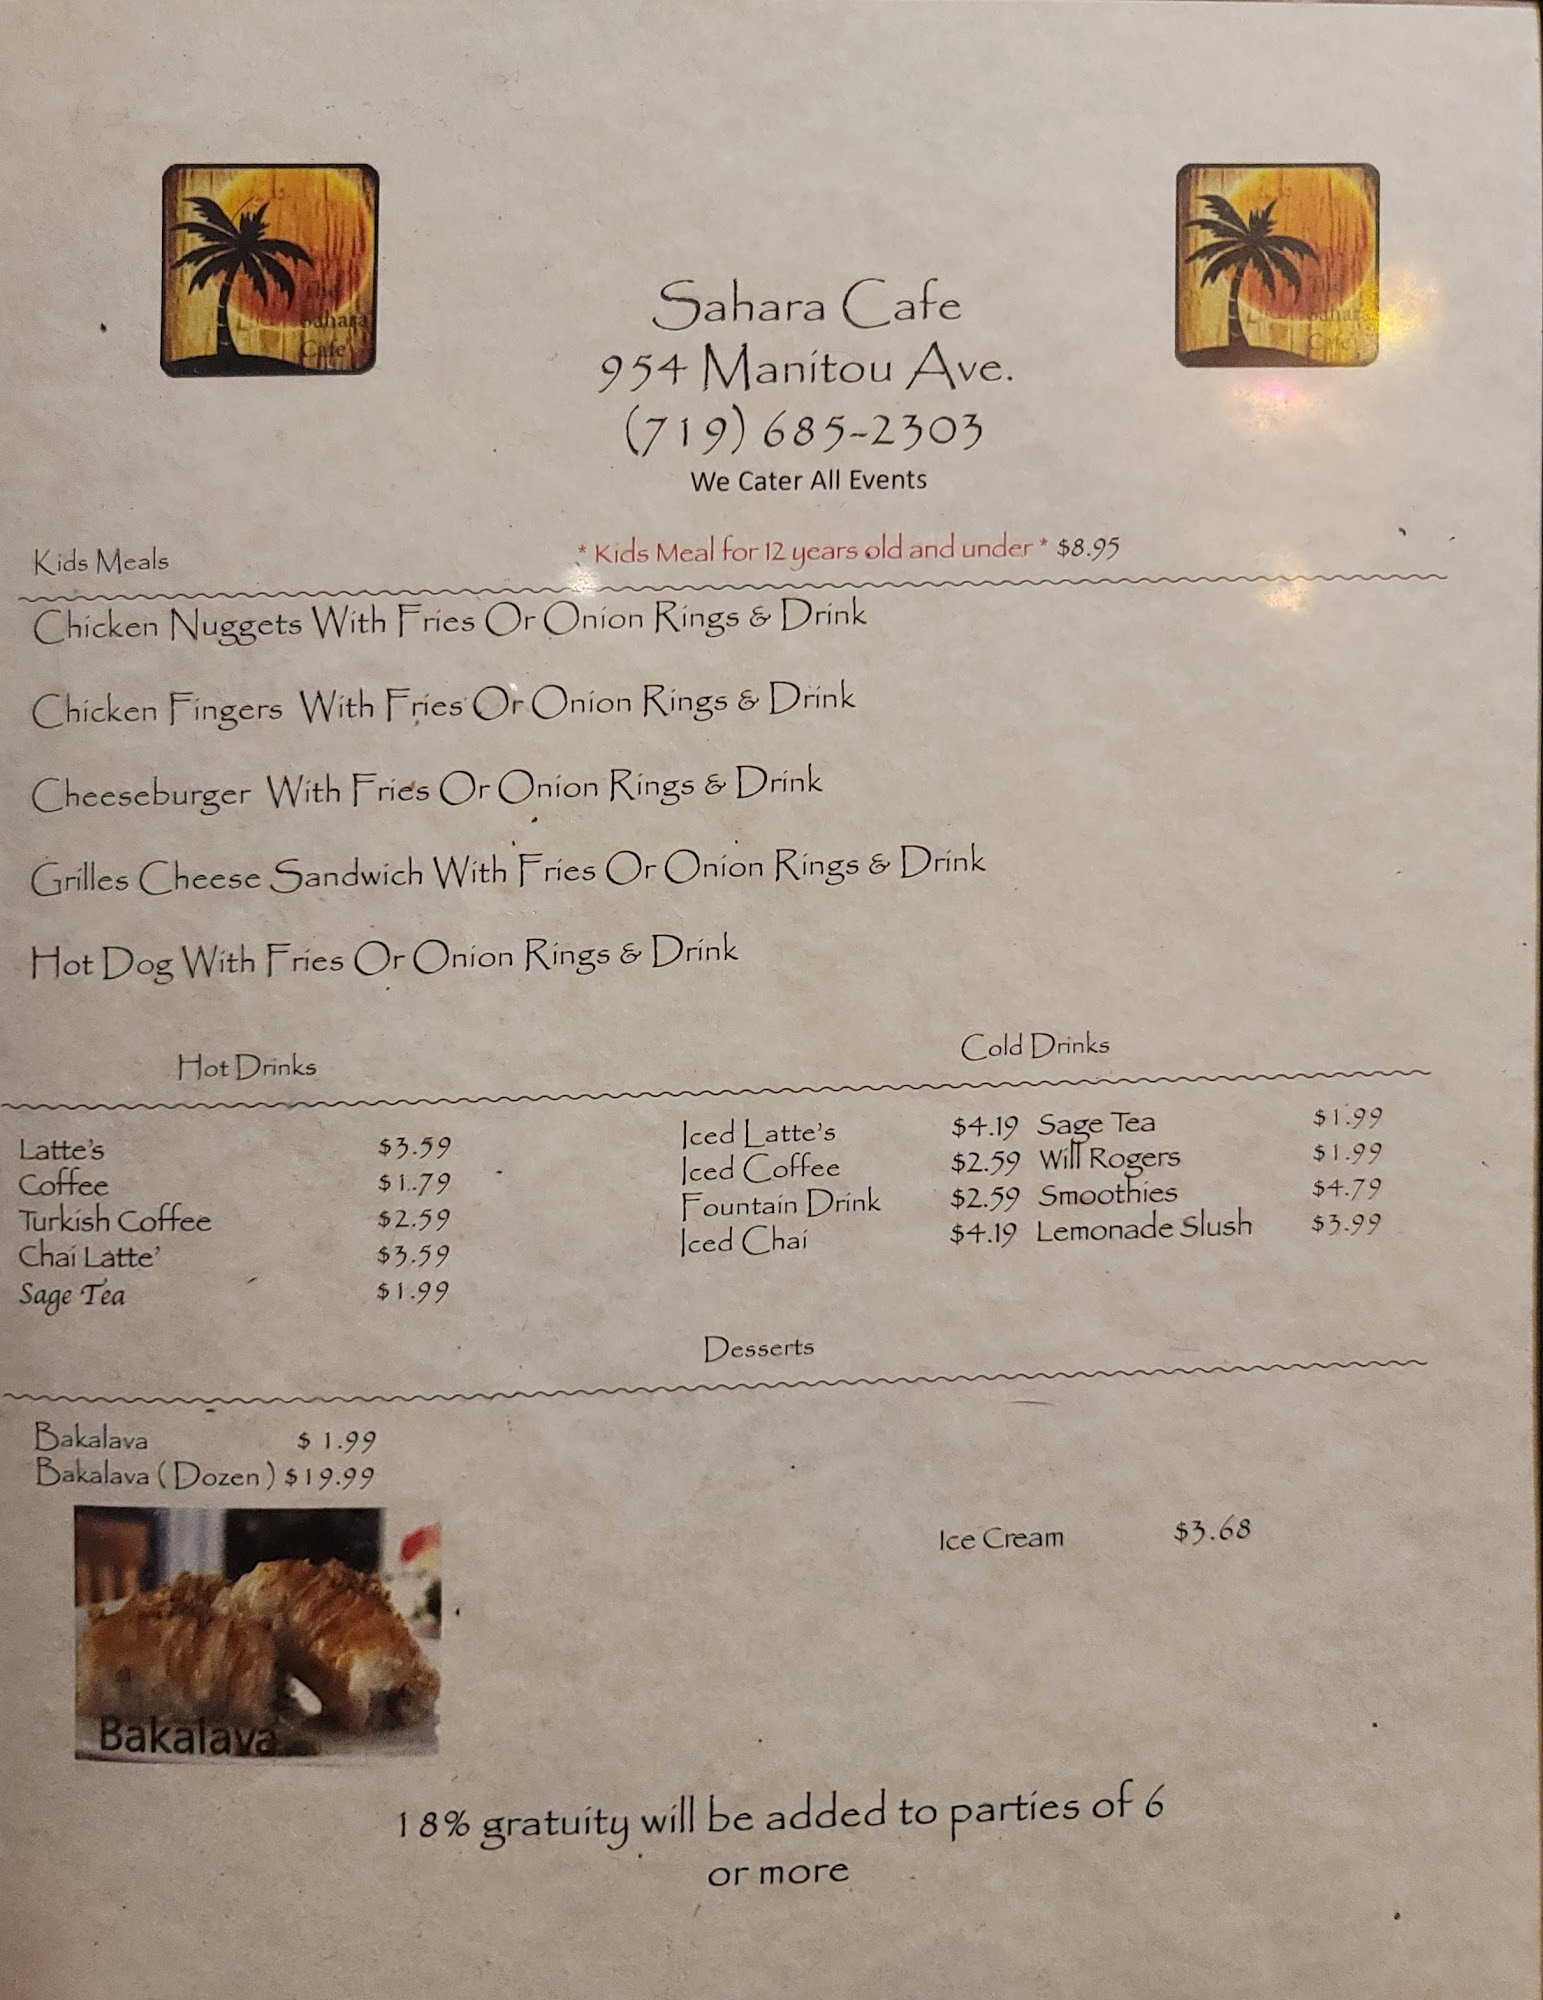 The
Sahara
Cafe
The
Sahar
Cafe
Sahara Cafe
954 Manitou Ave.
(719) 685-2303
We Cater All Events
Kids Meals * Kids Meal for 12 years old and under * $8.95
Chicken Nuggets With Fries Or Onion Rings & Drink
Chicken Fingers With Fries Or Onion Rings & Drink
Cheeseburger With Fries Or Onion Rings & Drink
Grilles Cheese Sandwich With Fries Or Onion Rings & Drink
Hot Dog With Fries Or Onion Rings & Drink
Hot Drinks
Latte's $3.59
Coffee $1.79
Turkish Coffee $2.59
Chai Latte' $3.59
Sage Tea $1.99
Cold Drinks
Iced Latte's $4.19 Sage Tea $1.99
Iced Coffee $2.59 Will Rogers $1.99
Fountain Drink $2.59 Smoothies $4.79
Iced Chai $4.19 Lemonade Slush $3.99
Desserts
Bakalava $ 1.99
Bakalava ( Dozen ) $19.99
Ice Cream $3.68
Bakalava
18% gratuity will be added to parties of 6
or more